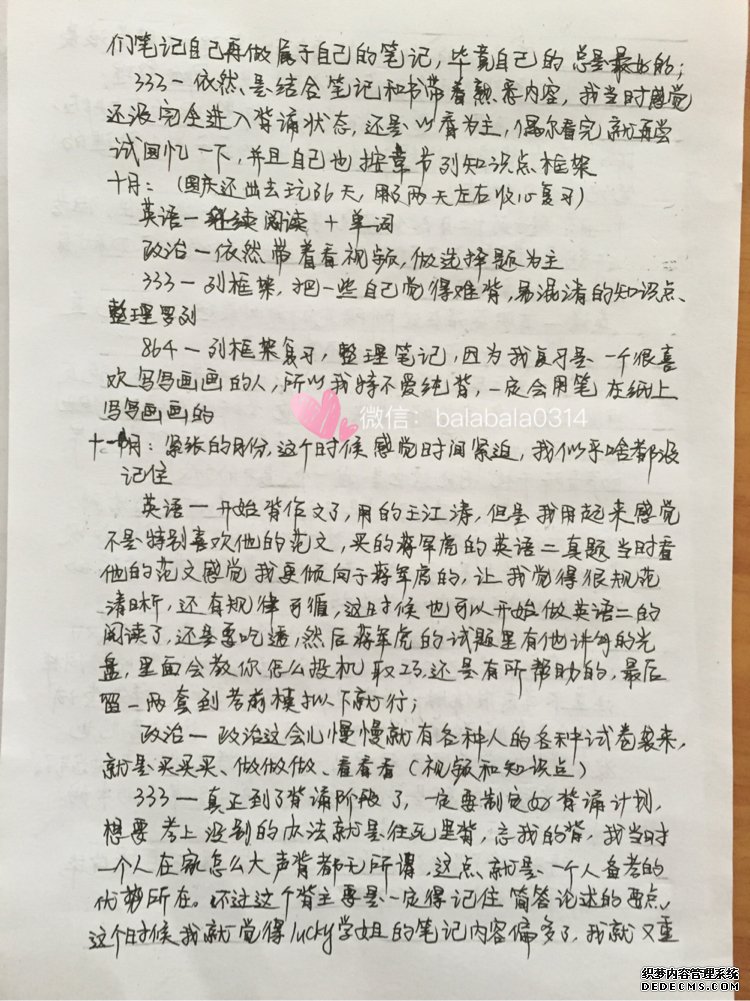 们笔记自己再做属于自己的笔记，毕竟自己的总是最好的；
333一依然是结合笔记和书带着熟悉内容，我当时感觉
还没完全进入背诵状态，还是以看为主，偶尔看完就再尝
试回忆一下，并且自己也按章节列知识点框架
十月：（国庆还出去玩36天，用了两天左右收心复习）
英语一继续阅读+单词
政治一依然带着看视频，做选择题为主
333一列框架，把一些自己觉得难背，易混淆的知识点、
整理罗列
864一列框架复习，整理笔记，因为我复习是一个很喜
欢写写画画的人，所以我特不爱纯背，一定会用笔在纸上
写写画画的
微信：balabala0314
十一月：紧张的月份，这个时候感觉时间紧迫，我似乎啥都没
记住
英语一开始背作文了，用的王江涛，但是我用起来感觉
不是特别喜欢他的范文，买的蒋军虎的英语二真题当时看
他的范文感觉我更倾向于蒋军虎的，让我觉得很规范
清晰，还有规律可循，这时候也可以开始做英语二的
阅读了，还是要吃透，然后蒋军虎的试题里有他讲号的光
盘，里面会教你怎么投机取巧，还是有所帮助的，最后
留一两套到考前模拟以下就行；
政治一政治这会儿慢慢就有各种人的各种试卷袭来，
就是买买买、做做做、看看看（视频和知识点）
333一真正到了背诵阶段了，一定要制定好背诵计划，
想要考上没别的办法就是往死里背，忘我的背，我当时
一个人在家怎么大声背都无所谓，这点就是一个人备考的
优势所在。不过这个背主要是一定得记住简答论述的要点、
这个时候我就觉得lucky学姐的笔记内容偏多了，我就又重
织梦内容管理系统
DEDECMS.COM